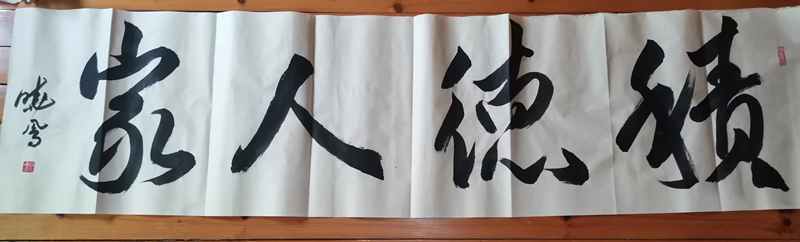 積德人家
晓阁